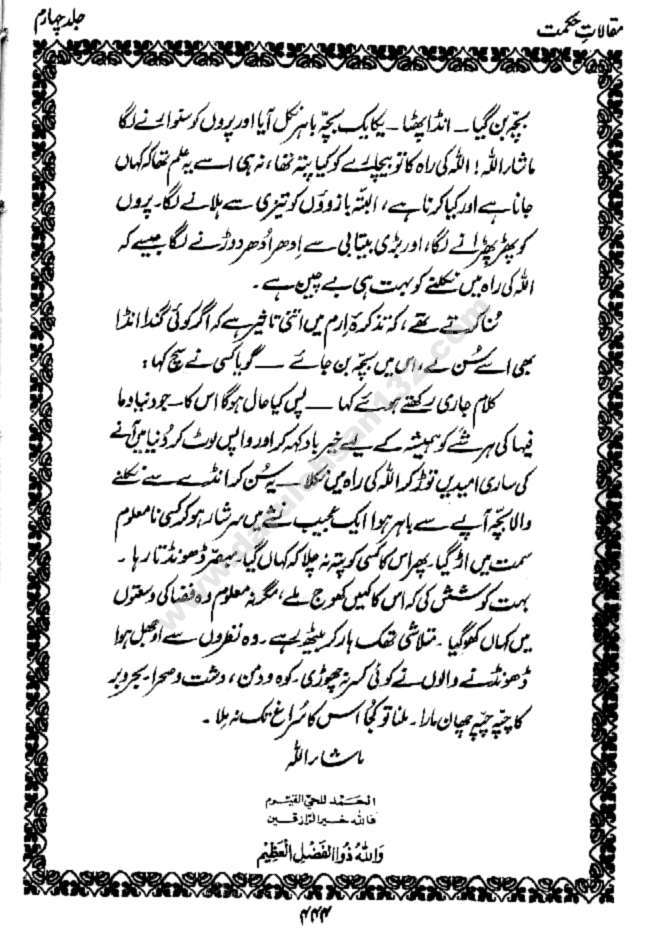 مقالاتِ حکمت
جلد چہارم
بچہ بن گیا ۔ انڈا پھٹا ۔ یکایک بچہ باہر نکل آیا اور پروں کو سنوارنے لگا
ماشاءاللہ! اللہ کی راہ کا تو بیچارے کو کیا پتہ تھا، نہ ہی اسے یہ علم تھا کہ کہاں
جانا ہے اور کیا کرنا ہے، البتہ بازوؤں کو تیزی سے ہلانے لگا۔ پروں
کو پھڑپھڑانے لگا، اور بڑی بیتابی سے اِدھر اُدھر دوڑنے لگا جیسے کہ
اللہ کی راہ میں نکلنے کو بہت ہی بے چین ہے ۔
سُنا کرتے تھے، کہ تذکرۂ اِرم میں اتنی تاخیر ہے کہ اگر کوئی گندا انڈا
بھی اسے سُن لے، اس میں بچہ بن جائے ۔ گویا کسی نے سچ کہا :
کلام جاری رکھتے ہوئے کہا ۔ پس کیا حال ہوگا اس کا ۔ جو دنیا و ما
فیہا کی ہر شے کو ہمیشہ کے لیے خیرباد کہہ کر اور واپس لوٹ کر دُنیا میں آنے
کی ساری امیدیں توڑ کر اللہ کی راہ میں نکلا ۔ یہ سُن کر انڈے سے نکلنے
والا بچہ آپے سے باہر ہوا ایک عجیب نشے میں سرشار ہو کر کسی نامعلوم
سمت میں اڑ گیا۔ پھر اس کا کسی کو پتہ نہ چلا کہ کہاں گیا۔ مبصّر ڈھونڈتا رہا ۔
بہت کوشش کی کہ اس کا کہیں کھوج ملے، مگر نہ معلوم وہ فضا کی وسعتوں
میں کہاں کھو گیا ۔ متلاشی تھک ہار کر بیٹھ رہے ۔ وہ نظروں سے اوجھل ہوا
ڈھونڈنے والوں نے کوئی کسر نہ چھوڑی۔ کوہ و دمن، دشت و صحرا بحر و بر
کا چپہ چپہ چھان مارا۔ ملنا تو کُجا اس کا سُراغ تک نہ ملا ۔
ماشاءاللہ
الحمد للحی القیوم
فاللہ خیر الرازقین
وَاللّٰهُ ذُوالْفَضْلِ الْعَظِیْمِ
۴۴۴
www.darulehsan132.com